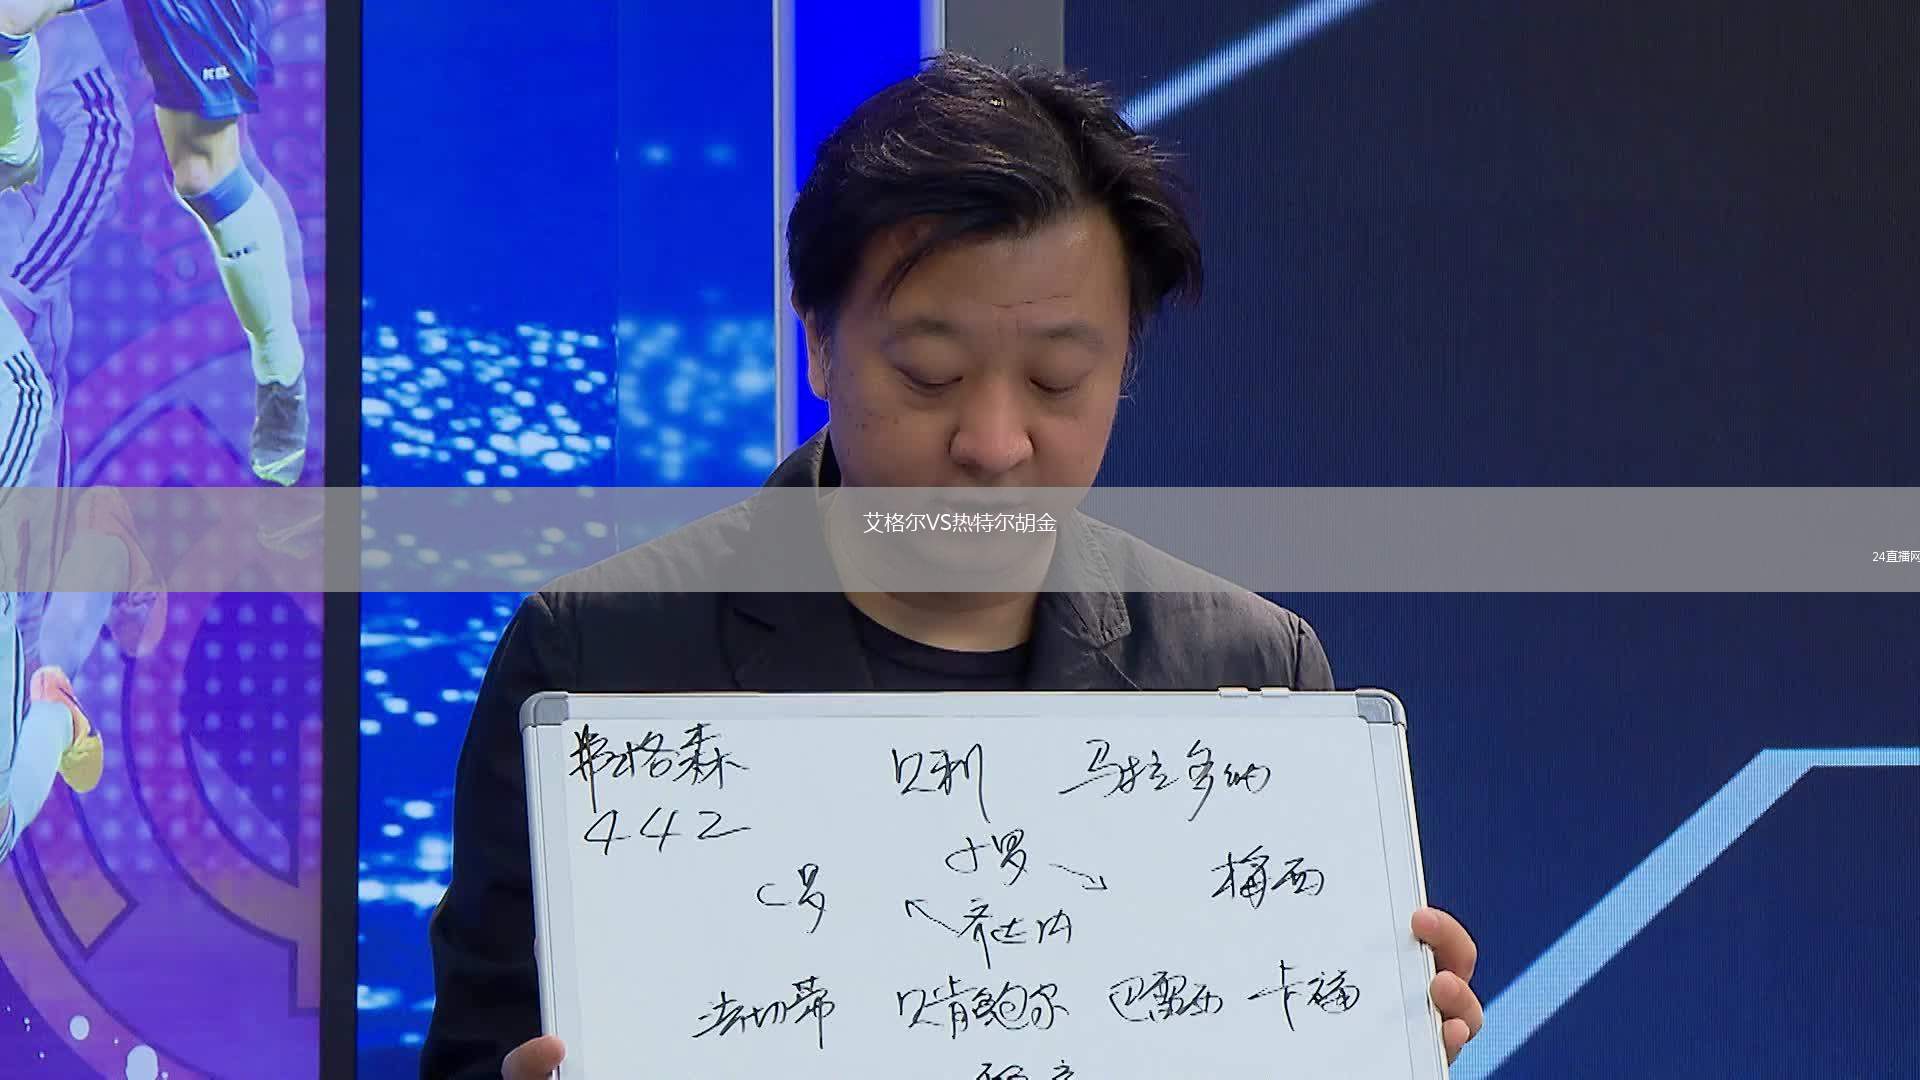 艾格尔VS热特尔胡金
24直播网
弗格森 贝利 马拉多纳
442
C罗 小罗 梅西
齐达内
法切蒂 贝肯鲍尔 巴雷西 卡福